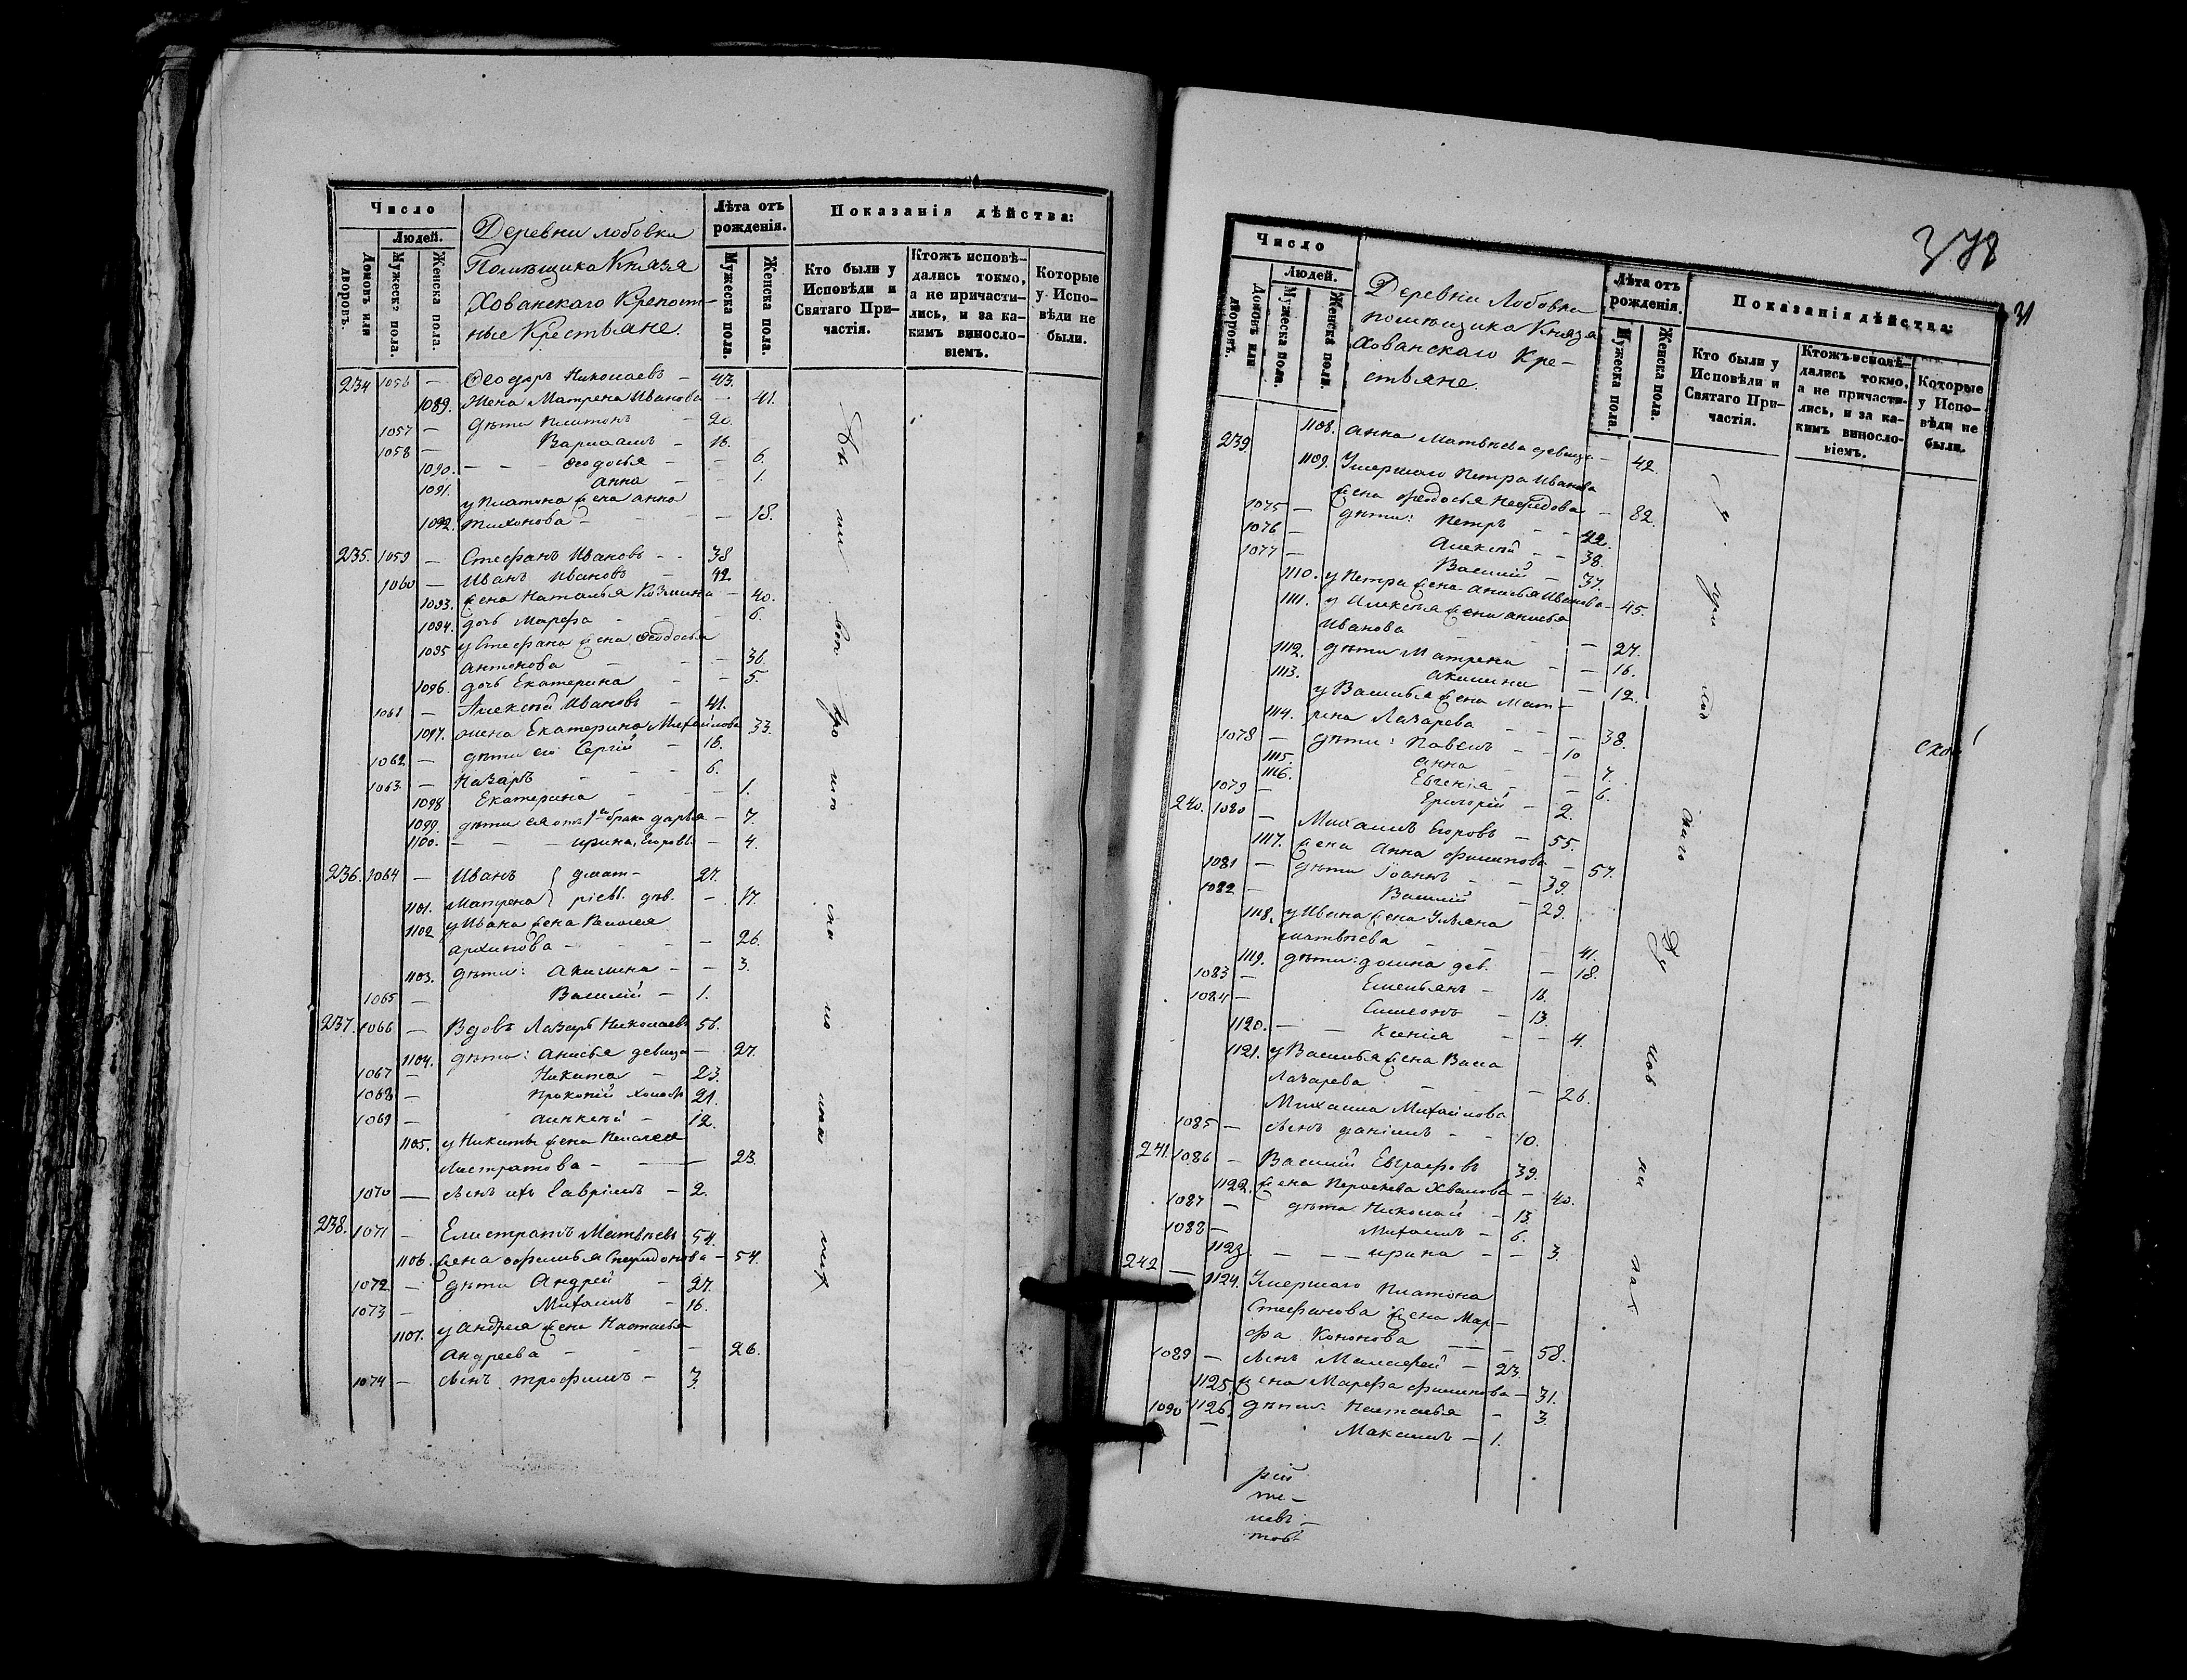 Число
Людей.
Домовъ или дворовъ.
Мужеска пола.
Женска пола.
Деревни Лобовки
Помѣщика Князя
Хованскаго Крепост-
ные Крестьяне.
Лѣта отъ рожденія.
Мужеска пола.
Женска пола.
Показанія дѣйства:
Кто были у Исповѣди и Святаго Причастія.
Ктожъ исповѣдались токмо, а не причастились, и за какимъ винословіемъ.
Которые у Исповѣди не были.
234 1056 — Ѳеодоръ Николаевъ — 43.
1089. Жена Матрена Иванова — 41.
1057 — дѣти Платонъ — 20.
1058 — Варлаамъ — 16.
1090. — — Ѳеодосья — 6.
1091. Анна — 1.
у Платона жена Анна
1092. Тихонова — — 18.
235. 1059 — Стефанъ Ивановъ — 38
1060 — Иванъ Ивановъ — 42
1093. жена Наталья Козмина — 40.
1094. дочь Марфа — 6.
1095 у Стефана жена Ѳеодосья
Антонова — — 36.
1096. дочь Екатерина — 5.
1061 — Алексѣй Ивановъ — 41.
1097. жена Екатерина Михайлова 33.
1062 — дѣти его Сергѣй — 16.
1063 — Назаръ — — 6.
1098 Екатерина — — 1.
1099. дѣти ея отъ 1го брака Дарья — 7.
1100. — — — Ирина, Егоровы — 4.
236. 1064 — Иванъ } Дмит- 27.
1101. Матрена } ріевы. дѣв. — 17.
1102 у Ивана жена Пелагея
Архипова — — 26.
1103. дѣти: Акилина — — 3.
1065 — Василій — 1.
237. 1066 — Вдовъ Лазарь Николаевъ 56.
1104. дѣти: Анисья девица — 27.
1067 — Никита — 23.
1068 — Прокопій холостъ 21.
1069 — Алексѣй — 12.
1105. у Никиты жена Пелагея
Листратова — — 23.
1070 — сынъ ихъ Гавріилъ — 2.
238. 1071 — Елистратъ Матвѣевъ 54.
1106. жена Офимья Спиридонова — 54.
1072 — дѣти Андрей — 27.
1073 — Михаилъ — 16.
1107. у Андрея жена Настасья
Андреева — — 26.
1074 — сынъ Трофимъ — 3.
378
Число
Людей.
Домовъ или дворовъ.
Мужеска пола.
Женска пола.
Деревни Лобовки
помѣщика Князя
Хованскаго Кре-
стьяне.
Лѣта отъ рожденія.
Мужеска пола.
Женска пола.
Показанія дѣйства:
Кто были у Исповѣди и Святаго Причастія.
Ктожъ исповѣдались токмо, а не причастились, и за какимъ винословіемъ.
Которые у Исповѣди не были.
1108. Анна Матвѣева девица — 42.
239 1109. Умершаго Петра Иванова
жена Ѳеодосья Нефедова — 82.
1075 — дѣти: Петръ — — 42.
1076 — Алексѣй — — 38.
1077 — Василій — 37.
1110. у Петра жена Анисья Иванова — 45.
1111. у Алексѣя жена Анисья
Иванова — — 27.
1112. дѣти Матрена — — 16.
1113. Акилина — 12.
у Василья жена Мат-
1114. рена Лазарева — — 38.
1078 — дѣти: Павелъ — — 10
1115. Анна — 7.
1116. Евгенія — — 6.
1079 — Григорій — 2.
240. 1080 — Михаилъ Егоровъ — 55.
1117. жена Анна Филипова — 57.
1081 — дѣти Іоаннъ — — 39.
1082 — Василій — 29.
1118. у Ивана жена Ульяна
Матвѣева — — 41.
1119. дѣти: Домна дѣв. — 18.
1083 — Емельянъ — 16.
1084 — Симеонъ — 13.
1120. — — Ксенія — — 4.
1121. у Василья жена Васа
Лазарева — — 26.
Михаила Михайлова
1085 — сынъ Даніилъ — — 10.
241. 1086 — Василій Евграфовъ 39.
1122. жена Парасковья — 40.
1087 — дѣти Николай — 13.
1088 — Михаилъ — 6.
1123. — — Ирина — — 3.
242 — 1124. Умершаго Платона
Стефанова жена Мар-
фа Кононова — — 58.
1089 — сынъ Малафей — 23.
1125. жена Марфа Филипова — 31.
1126. дѣти: Настасья — 3.
1090 — Максимъ — 1.